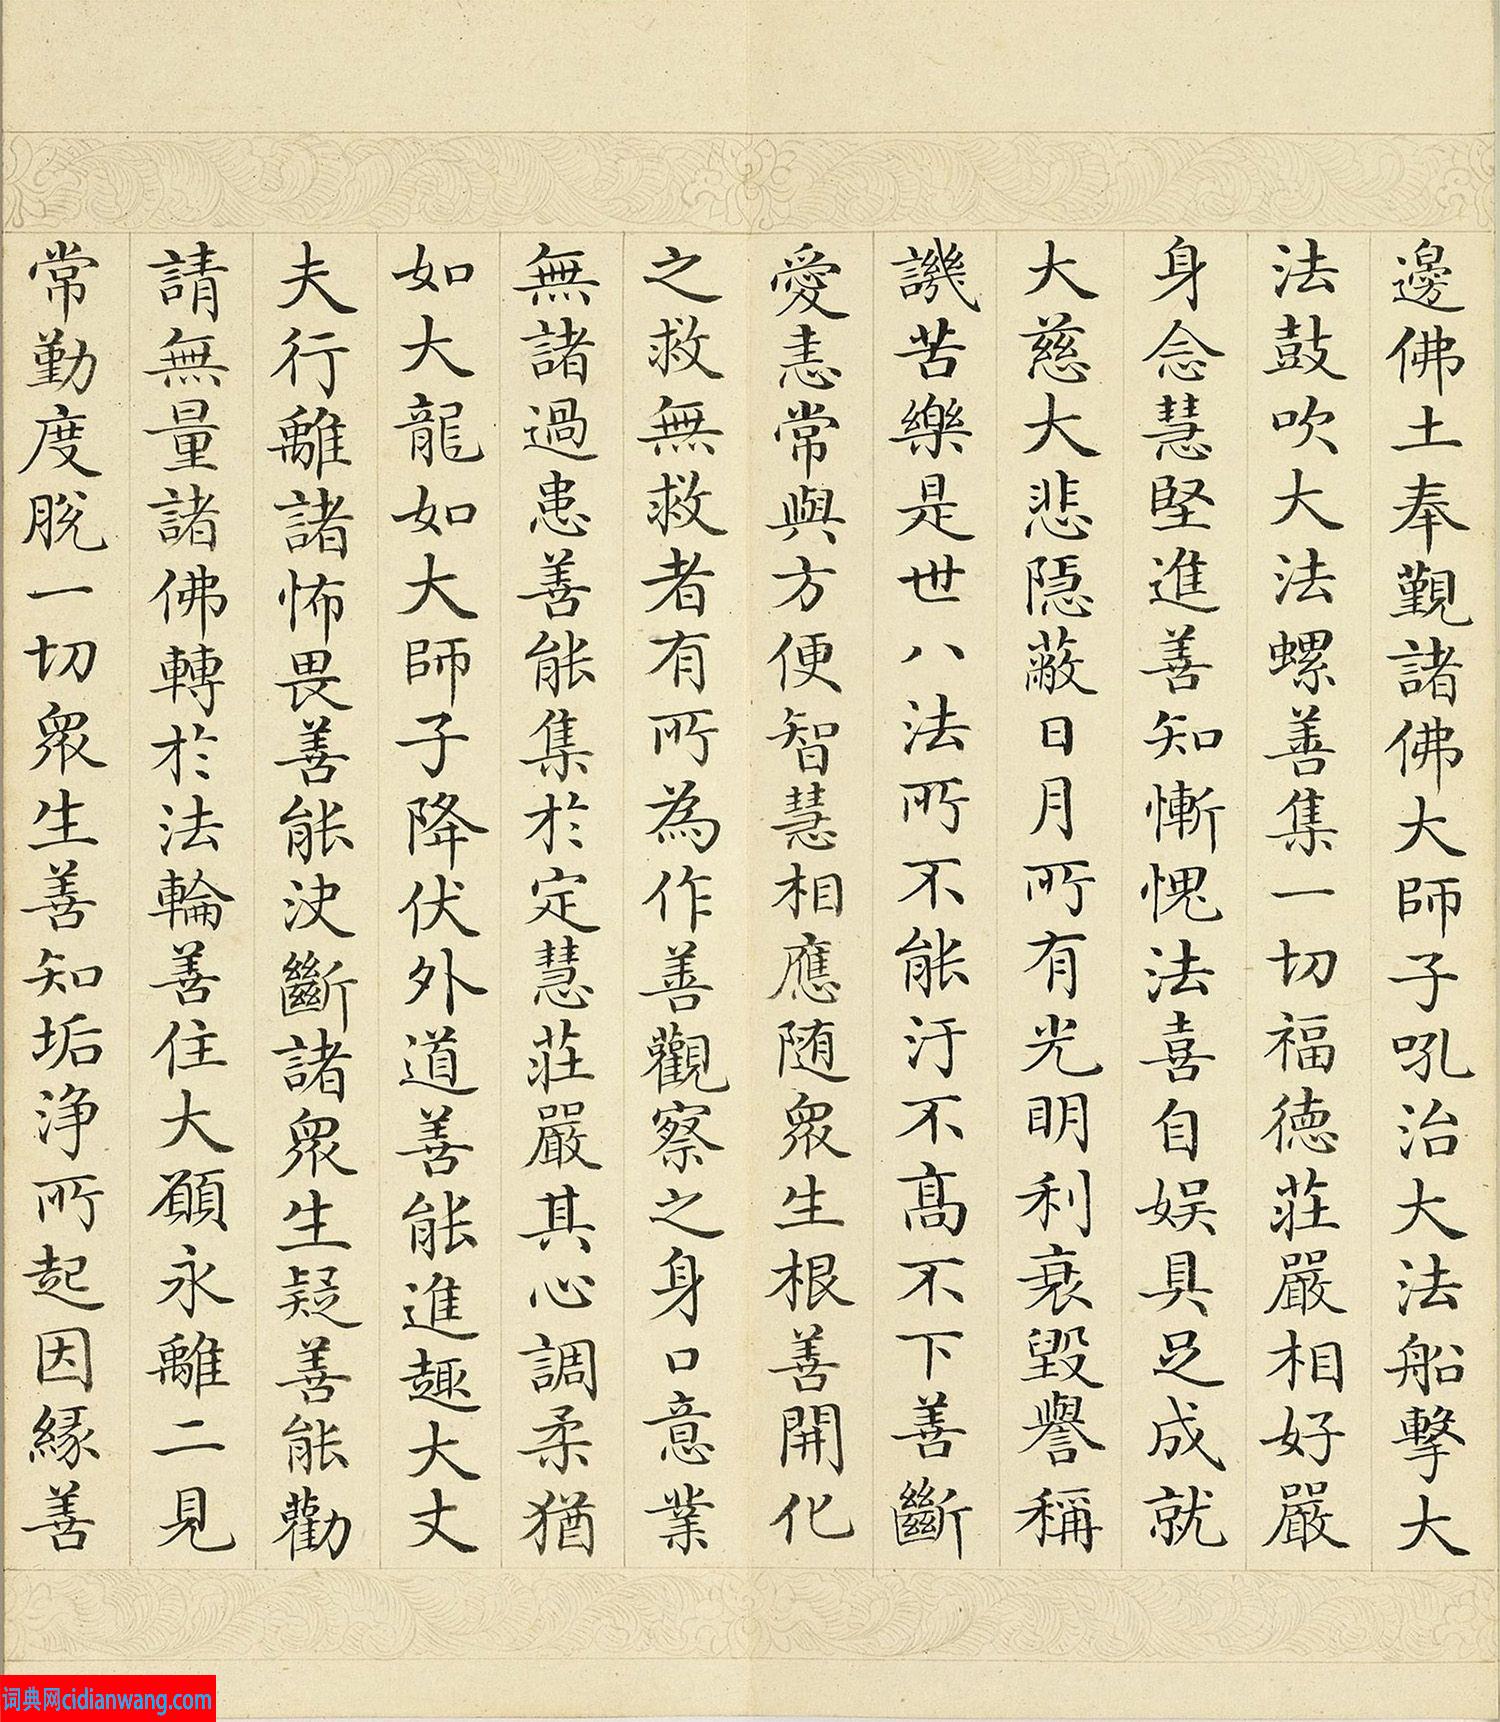 邊佛土奉覲諸佛大師子吼治大法船擊大
法鼓吹大法螺善集一切福德莊嚴相好嚴
身念慧堅進善知慚愧法喜自娛具足成就
大慈大悲隱蔽日月所有光明利衰毀譽稱
譏苦樂是世八法所不能汙不高不下善斷
愛恚常與方便智慧相應随眾生根善開化
之救無救者有所為作善觀察之身口意業
無諸過患善能集於定慧莊嚴其心調柔猶
如大龍如大師子降伏外道善能進趣大丈
夫行離諸怖畏善能決斷諸眾生疑善能勸
請無量諸佛轉於法輪善住大願永離二見
常勤度脫一切眾生善知垢淨所起因緣善
词典网cidianwang.com